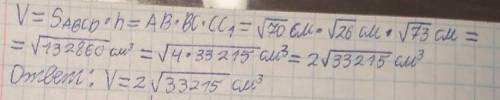 V = S_ABCD · h = AB · BC · CC₁ = √70 см · √26 см · √73 см =
= √132860 см³ = √4 · 33215 см³ = 2√33215 см³
Ответ: V = 2√33215 см³